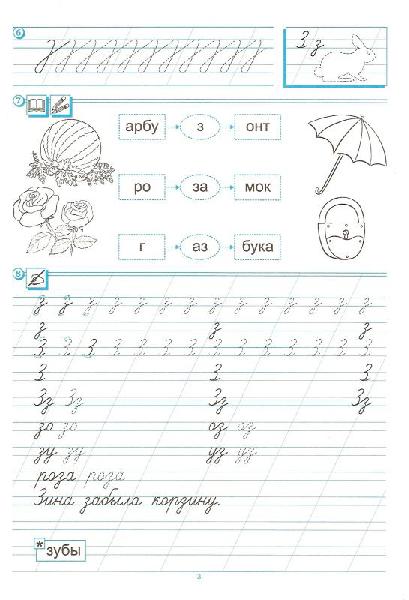 6
З з
7
арбу з онт
ро за мок
г аз бука
8
з з з з з з з з з з з з з з з
з з з
З З З З З З З З З З З З З З
З З З
Зз Зз Зз Зз
зо зо оз оз
зу зу уз уз
роза роза
Зина забыла корзину.
* зубы
3